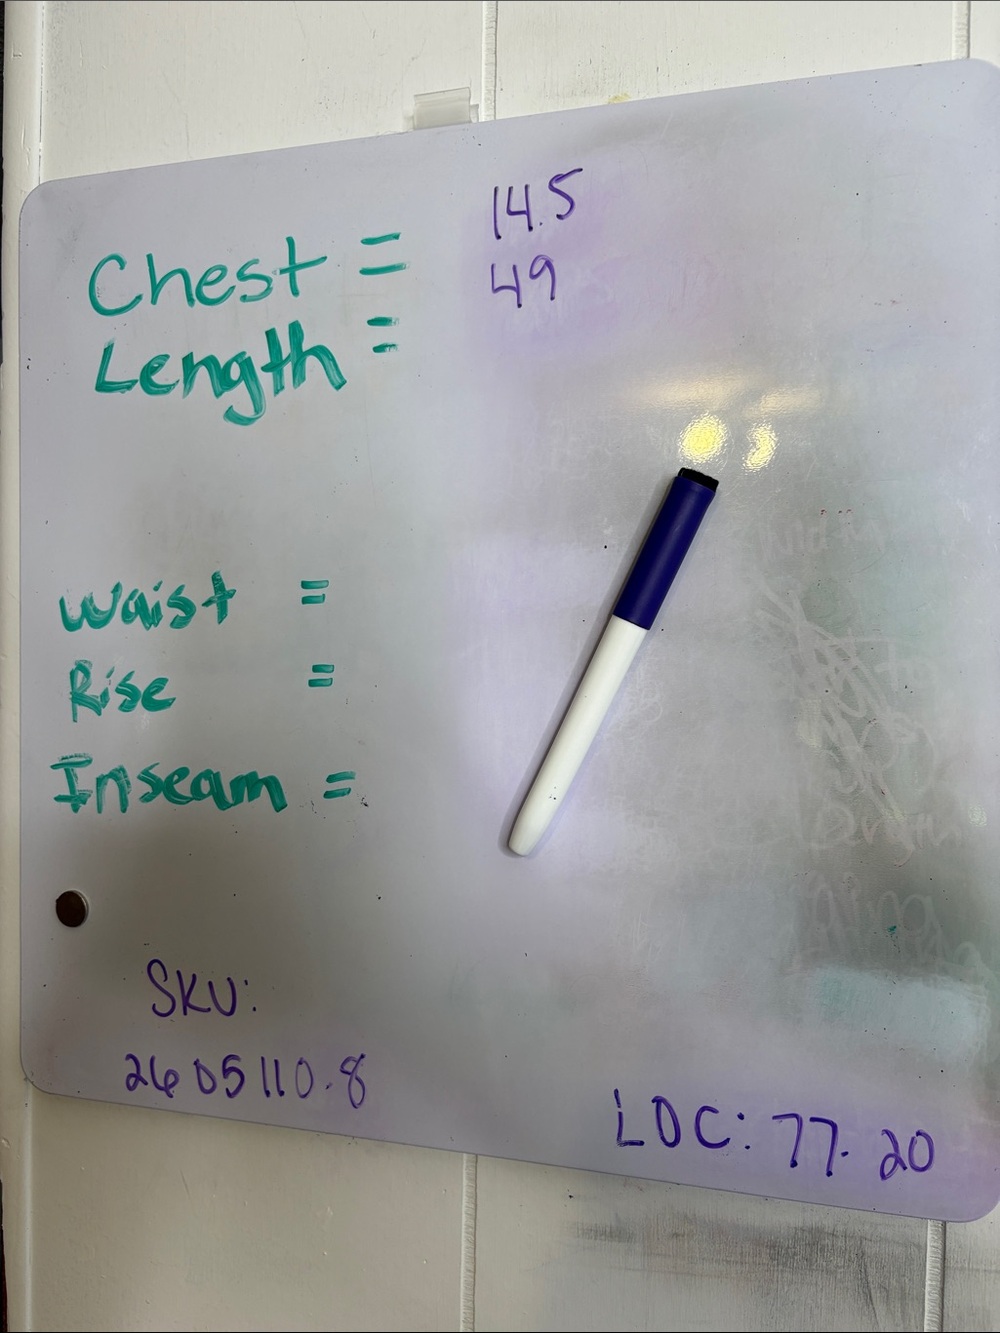 Chest = 14.5
Length = 49
Waist =
Rise =
Inseam =
SKU:
2605110.8
LOC: 77.20